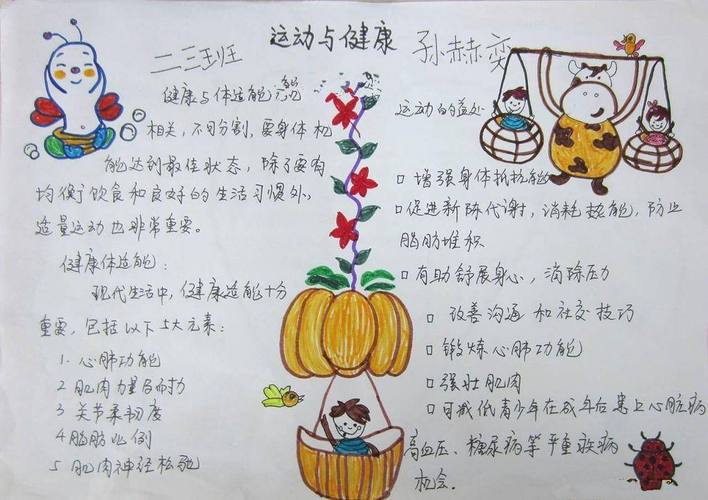 运动与健康
二三班
孙赫奕
健康与体适能息息
相关,不可分割,要身体机
能达到最佳状态,除了要有
均衡饮食和良好的生活习惯外,
适量运动也非常重要。
健康体适能:
现代生活中,健康适能十分
重要,包括以下5大元素:
1、心肺功能
2 肌肉力量与耐力
3、关节柔韧度
4 脂肪比例
5 肌肉神经松驰
运动的益处
增强身体抵抗能
促进新陈代谢,消耗热能,防止
脂肪堆积
有助舒展身心,消除压力
改善沟通和社交技巧
锻炼心肺功能
强壮肌肉
可减低青少年在成年后患上心脏病
高血压、糖尿病等严重疾病
机会.